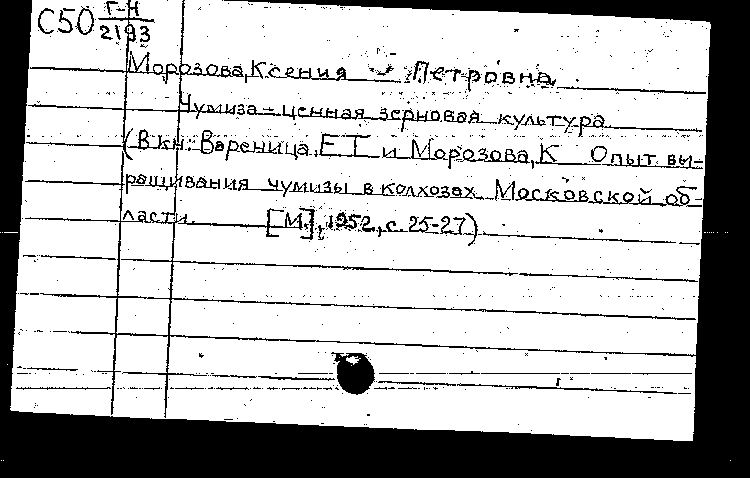 С50 Г-Н
2193
Морозова, Ксения Петровна.
Чумиза – ценная зерновая культура
(В кн: Вареница, Е Т и Морозова, К Опыт вы-
ращивания чумизы в колхозах Московской об-
ласти. [М.], 1952, с. 25-27)